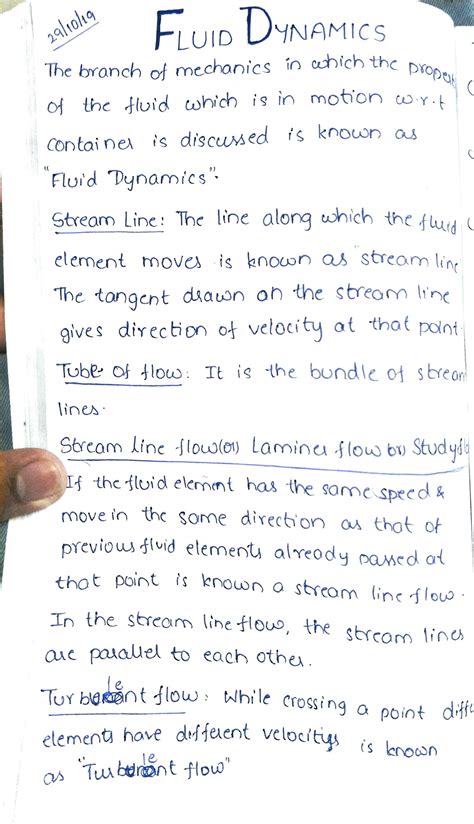 29/10/19
FLUID DYNAMICS
The branch of mechanics in which the
of the fluid which is in motion w.r.t
container is discussed is known as
"Fluid Dynamics".
Stream Line: The line along which the fluid
element moves is known as "stream line
The tangent drawn on the stream line
gives direction of velocity at that point
Tube of flow: It is the bundle of stream
lines.
Stream line flow(or) Laminer flow (or)
If the fluid element has the same speed &
move in the same direction as that of
previous fluid elements already passed at
that point is known a stream line flow.
In the stream line flow, the stream lines
are parallel to each other.
flow: While crossing a point
elements have different velocitys is known
as flow"